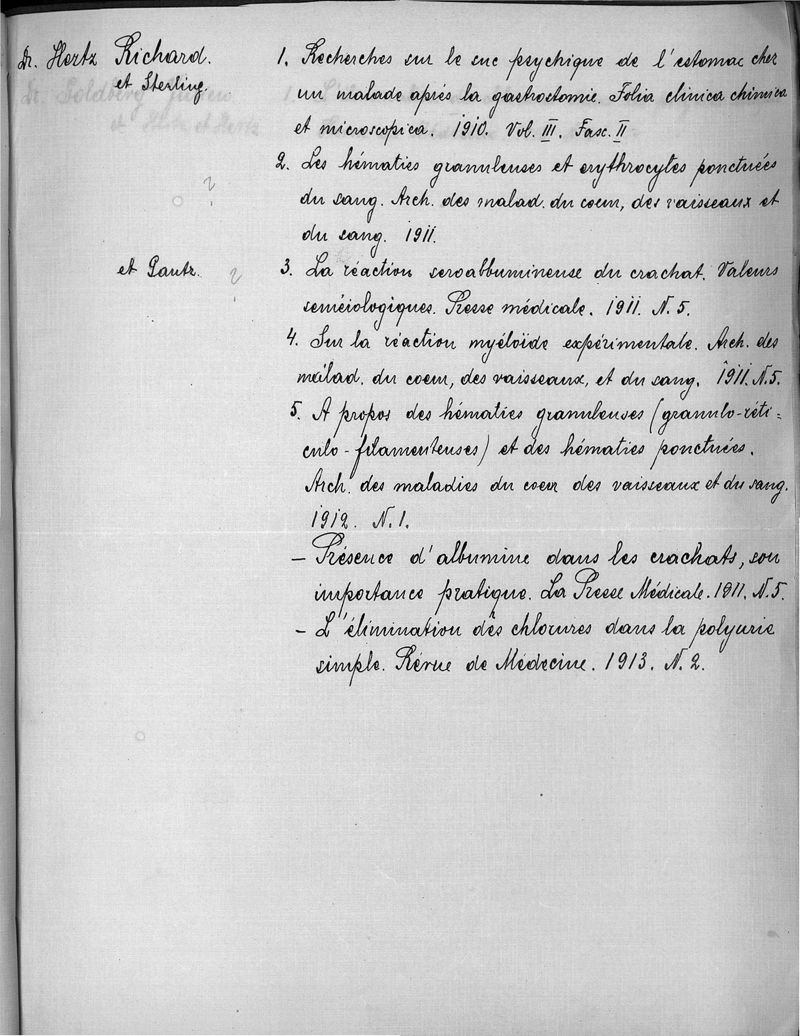 Dr. Hertz Richard.
et Sterling.
1. Recherches sur le suc psychique de l'estomac chez
un malade aprés la gastroctomie. Folia clinica chimica
et microscopica. 1910. Vol. III. Fasc. II
2. Les hématies granuleuses et erythrocytes ponctuées
du sang. Arch. des malad. du coeur, des vaisseaux et
du sang. 1911.
?
et Gantz. ?
3. La réaction seroalbumineuse du crachat. Valeurs
seméiologiques. Presse médicale. 1911. N. 5.
4. Sur la réaction myéloïde expérimentale. Arch. des
malad. du coeur, des vaisseaux, et du sang. 1911. N. 5.
5. A propos des hématies granuleuses (granulo-réti=
culo-filamenteuses) et des hématies ponctuées.
Arch. des maladies du coeur des vaisseaux et du sang.
1912. N. 1.
– Présence d'albumine dans les crachats, son
importance pratique. La Presse Médicale. 1911. N. 5.
– L'élimination des chlorures dans la polyurie
simple. Révue de Médecine. 1913. N. 2.